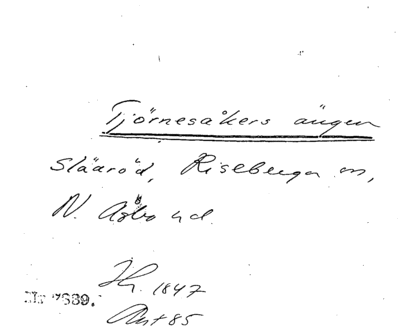 Tjörnesåkers ängen
Slääröd, Riseberga sn,
N. Åsbo hd.
1847
Nr 7689.
Ant 85